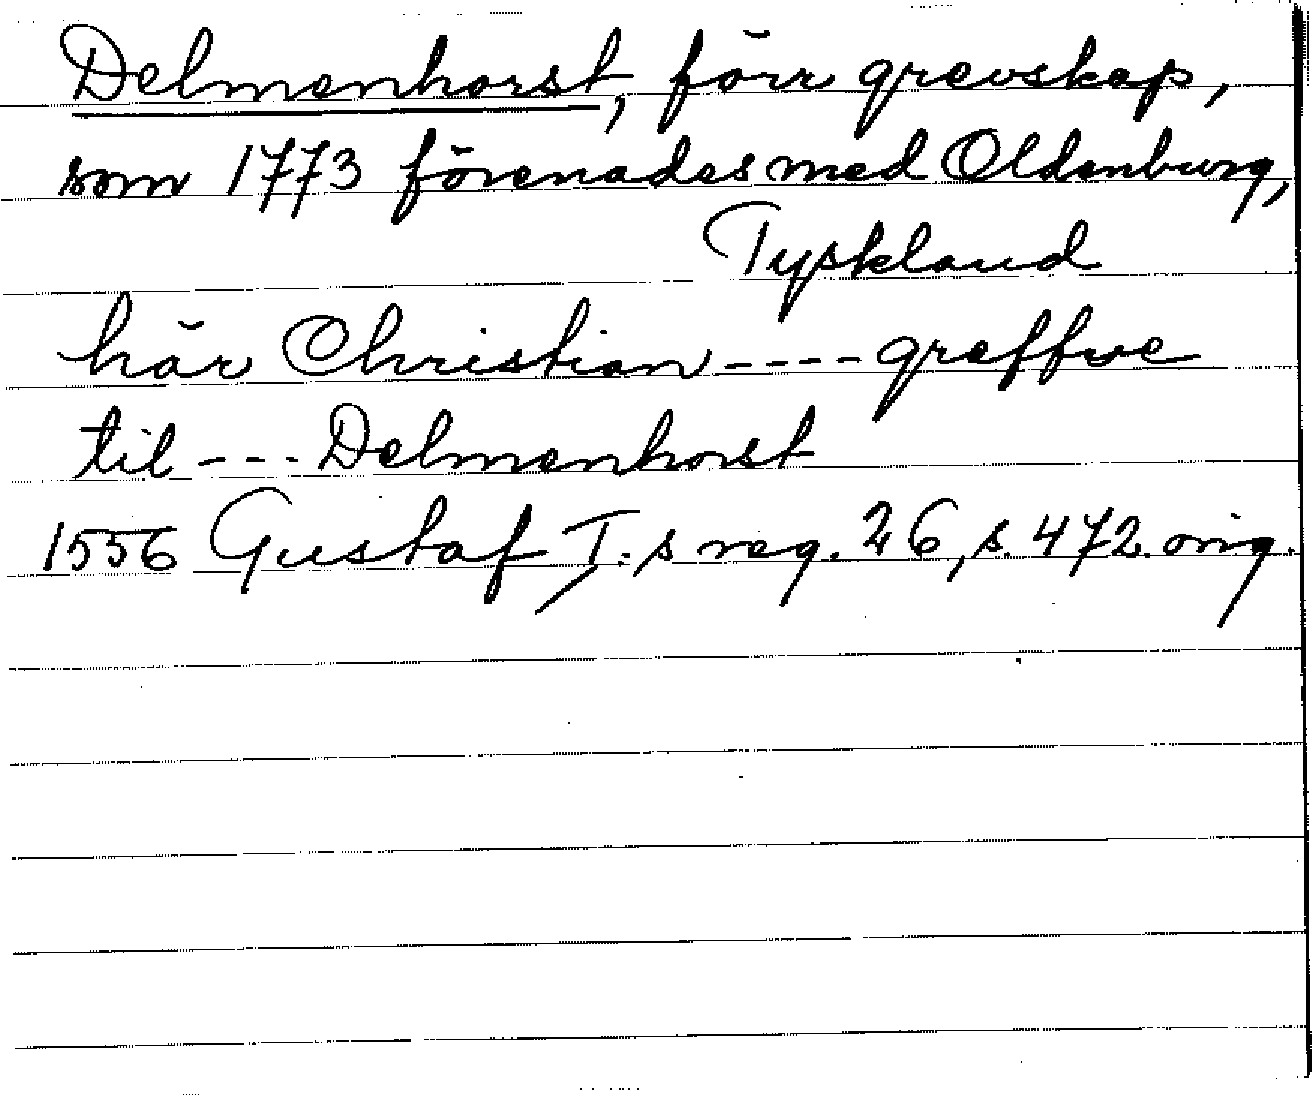 Delmenhorst, förr grevskap,
som 1773 förenades med Oldenburg,
Tyskland
här Christian ---- greffwe
til --- Delmenhorst
1556 Gustaf I:s reg. 26, s. 472. orig.